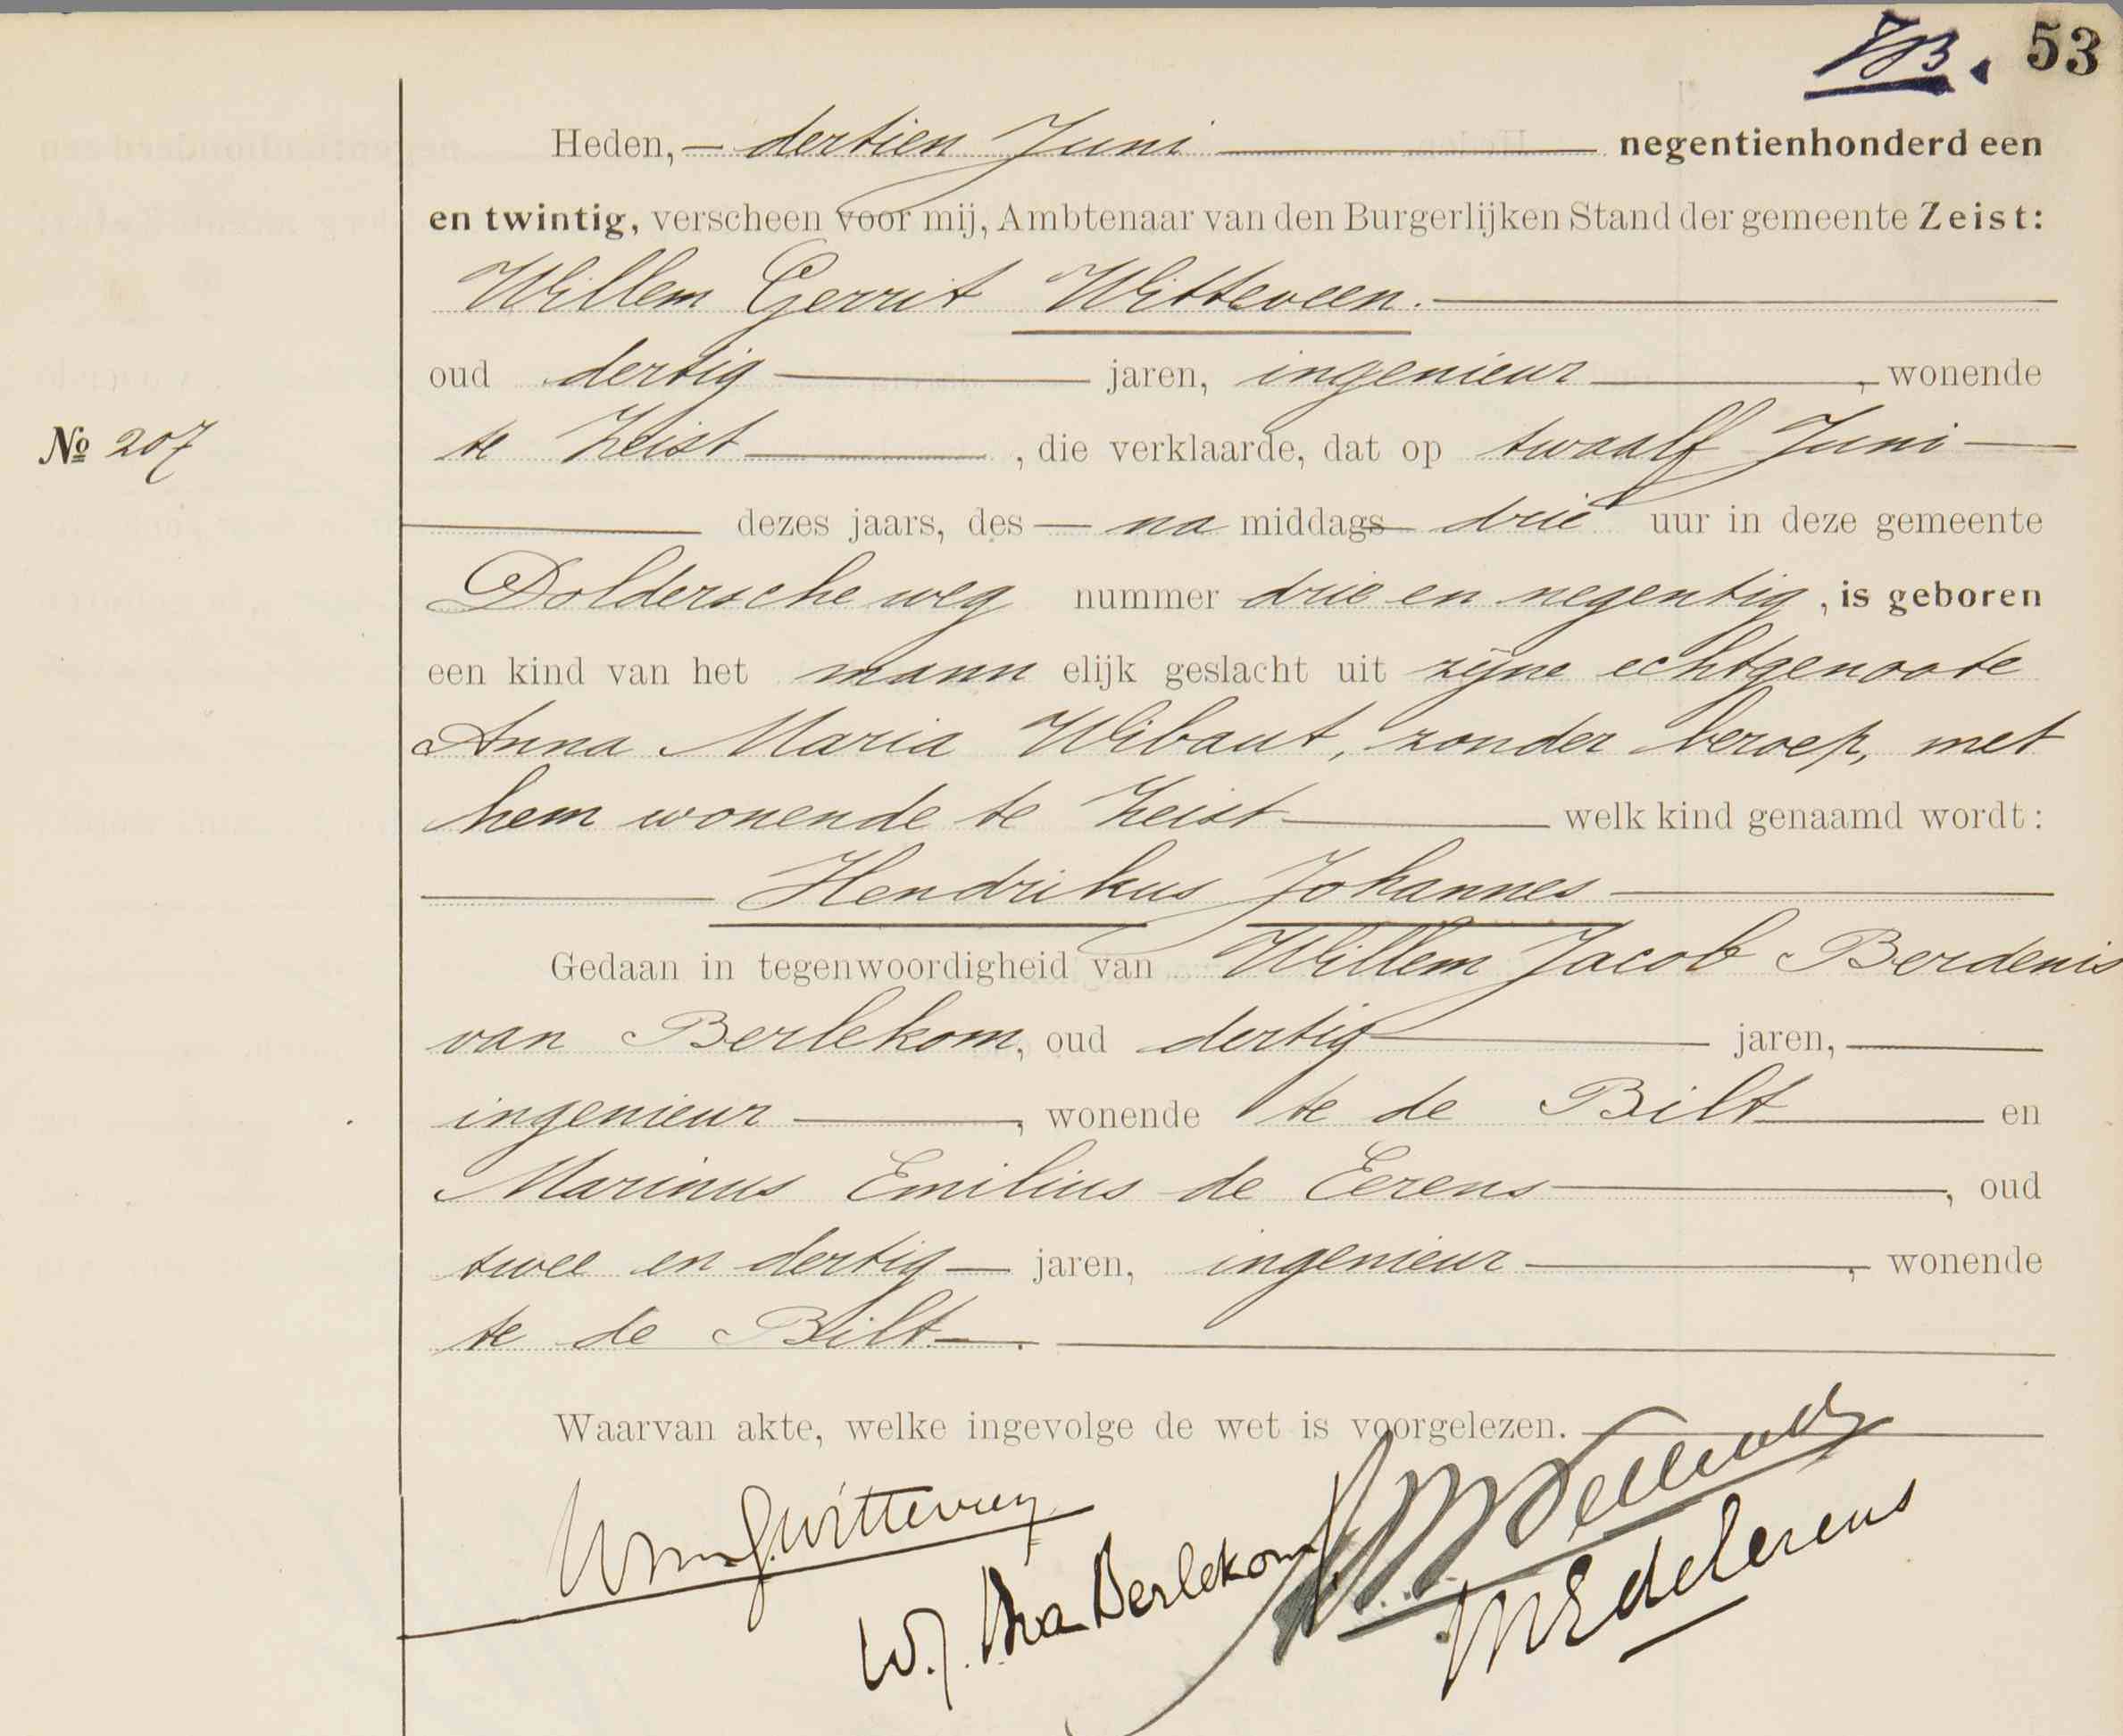 53
Heden, dertien Juni negentienhonderd een
en twintig, verscheen voor mij, Ambtenaar van den Burgerlijken Stand der gemeente Zeist:
Willem Gerrit Witteveen.
oud dertig jaren, ingenieur, wonende
№ 207
te Zeist, die verklaarde, dat op twaalf Juni
dezes jaars, des na middags drie uur in deze gemeente
Doldersche weg nummer drie en negentig, is geboren
een kind van het mann elijk geslacht uit zijne echtgenoote
Anna Maria Wibaut, zonder beroep, met
hem wonende te Zeist welk kind genaamd wordt:
Hendrikus Johannes
Gedaan in tegenwoordigheid van Willem Jacob Berdenis
van Berlekom, oud dertig jaren,
ingenieur, wonende te de Bilt en
Marinus Emilius de Eerens, oud
twee en dertig jaren, ingenieur, wonende
te de Bilt.
Waarvan akte, welke ingevolge de wet is voorgelezen.
Wm G. Witteveen
W.J. Bva Berlekom
M E de Eerens